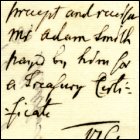 precept and receip
Mr Adam Smith
payd by him for
a Treasury Certi-
ficate